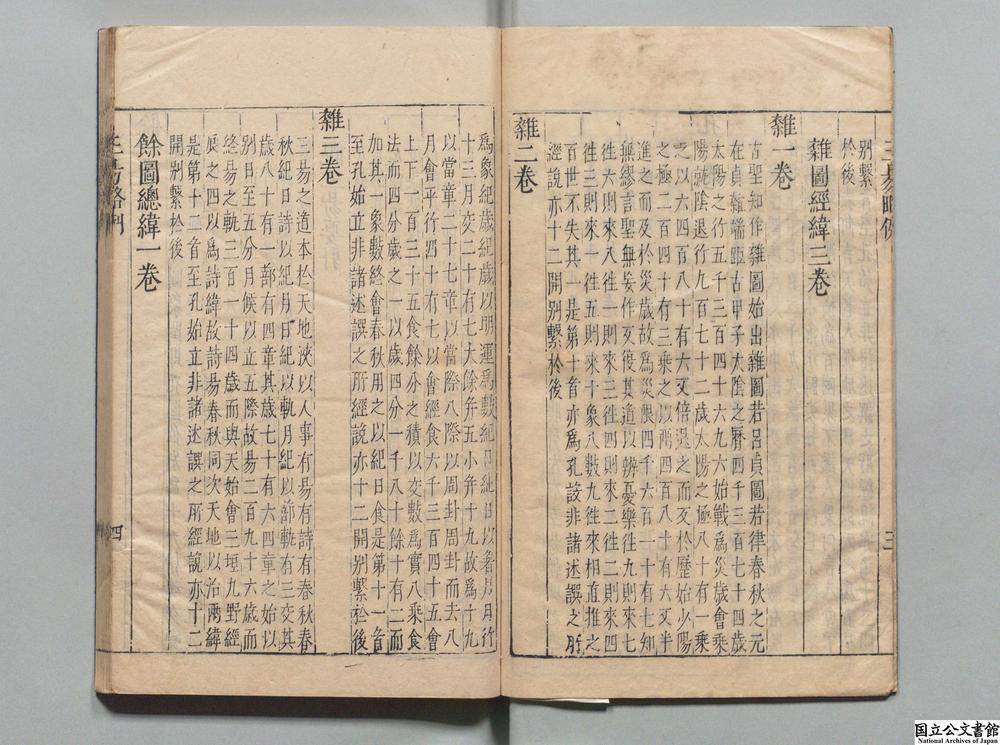 三易畧例
別繫
於後
雜圖經緯三卷
雜一卷
古聖知作雜圖始出雜圖若呂貞圖若律春秋之元
在貞雜端距古甲子太陰之曆四千三百七十四歲
太陽之行五千三百四十六九六始戰爲災歲會乗
陽就陰退行九百七十二歲太陽之極八十有一乗
之以六四百八十有六又倍退之而爻於歷始少陽
之極二百四十有三乗之以兩四百八十有六爻半
進之而及於災歲故爲災限四千六百一十有七知
無繆言聖無妄作爻後其道以辨憂樂徃九則來七
徃六則來八徃一則來三徃四則來二徃二則來四
徃三則來一徃五則來十象八數九徃來相直推之
百世不失其一是第十音亦爲孔設非諸述譔之所
經說亦十二開別繫於後
雜二卷
三
爲象紀歲紀歲以明運爲數紀日紀日以著月月行
十三月交二十有七大餘弁五小弁十九故爲十九
以當章二十七章以當際八際以周卦周卦而去八
月會平行四十有七以會經食六千三百四十五會
上下一百三十五食餘分之積以交數爲實八乗食
法而四分歲之一以歲四分一千八十餘十有二而
加其一象數終會春秋用之以紀日食是第十一音
至孔始立非諸述譔之所經說亦十二開別繫於後
雜三卷
三易之道本於天地浹以人事有易有詩有春秋春
秋紀日詩以紀月日紀以軌月紀以蔀軌有三交其
歲八十有一蔀有四章其歲七十有六四章之始以
別日至五分月候以立五際故易二百九十六歲而
終易之軌三百一十四歲而與天始會三垣九野經
辰之四以爲詩緯故詩易春秋同次天地以治兩緯
是第十二音至孔始立非諸述譔之所經說亦十二
開別繫於後
餘圖總緯一卷
三易畧例
四
国立公文書館
National Archives of Japan